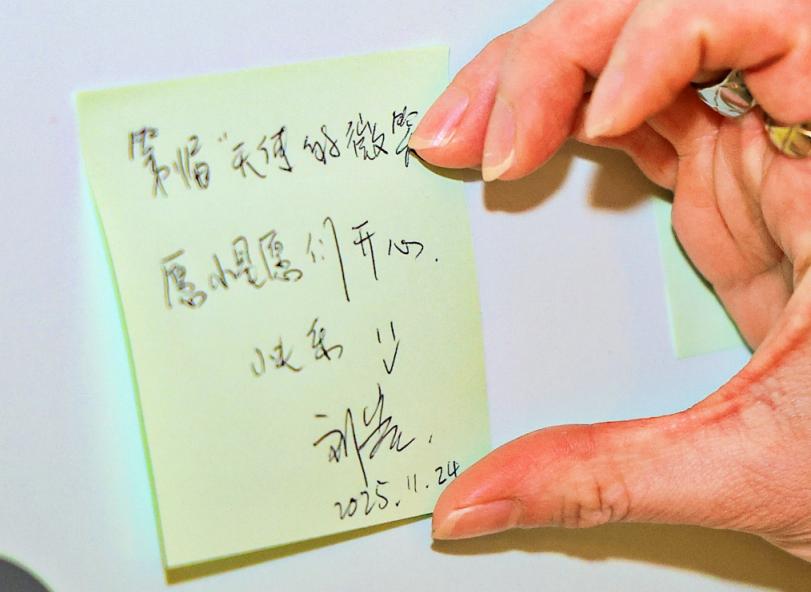 第1届“天使的微笑
愿小星愿们开心.
快乐 :)
刘岩.
2025.11.24